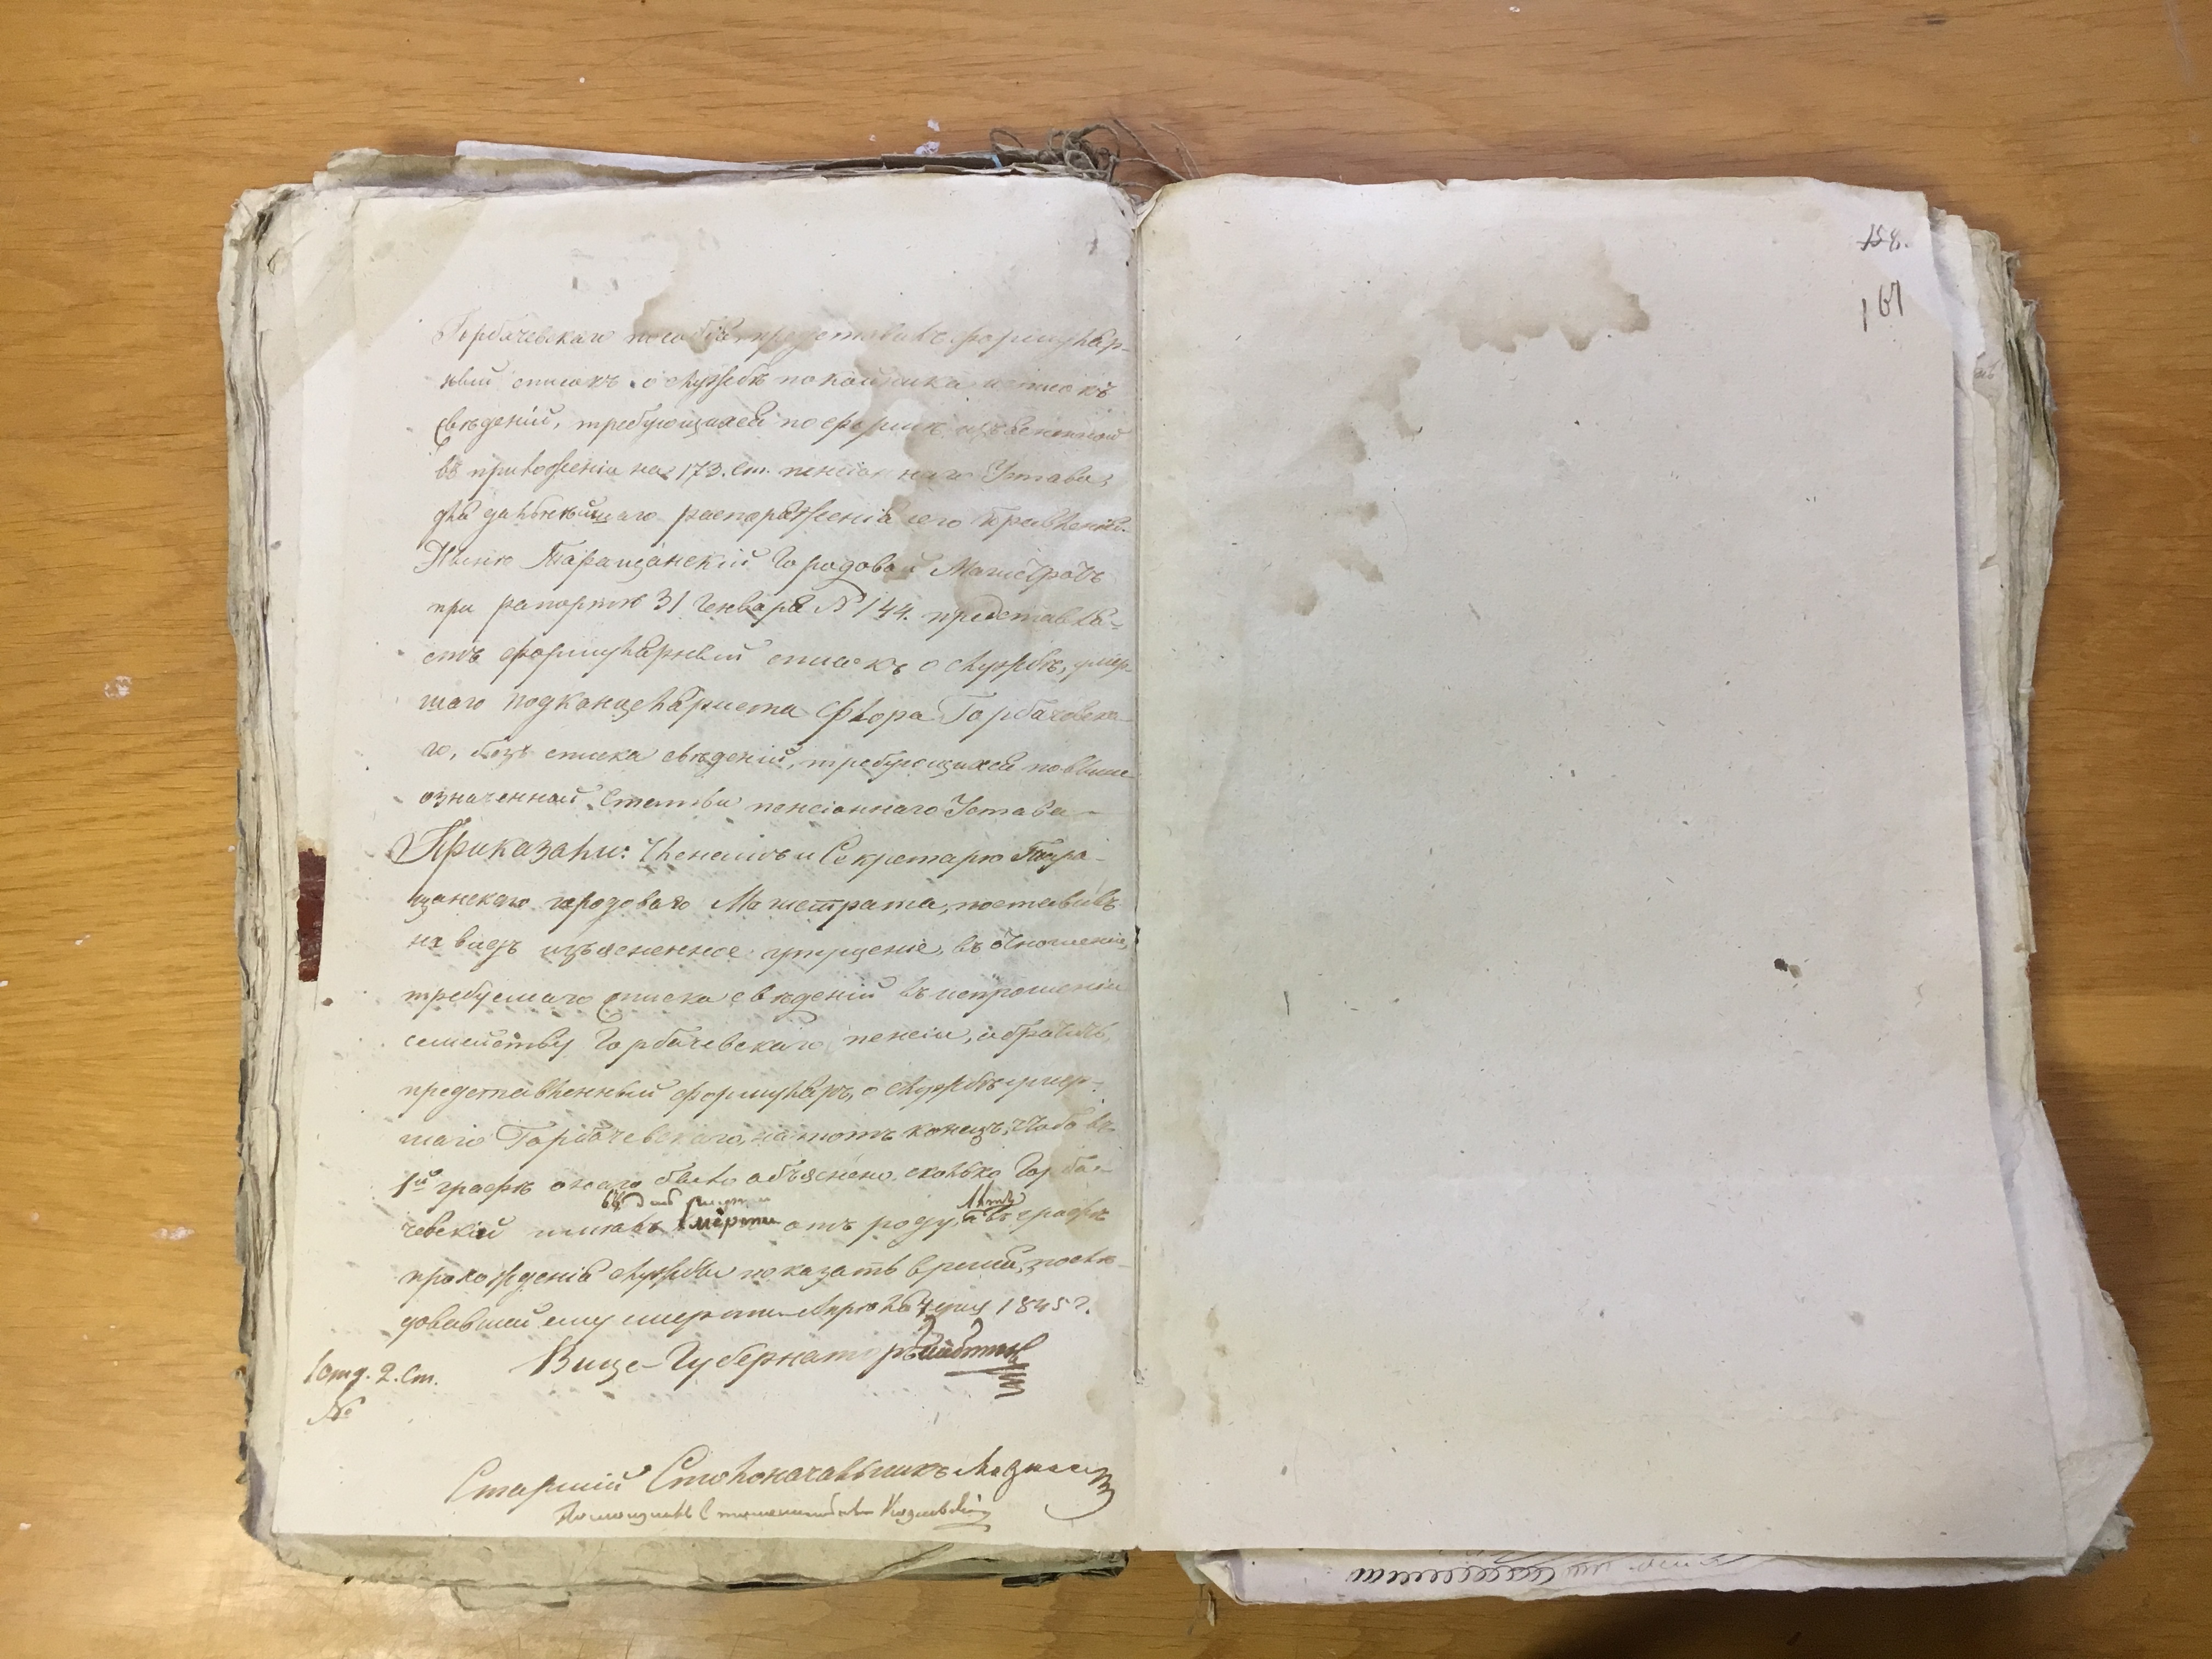 Горбачевскаго пособія представить формуляр-
ный списокъ о службѣ покойника и списокъ
свѣденій, требующихся по формѣ изъясненной
въ приложеніи на 173. ст. пенсіоннаго Устава,
для дальнѣйшаго распоряженія его Правленію.
Нынѣ Таращанскій Городовой Магистратъ
при рапортѣ 31 Генваря № 144. представля-
етъ формулярный списокъ о службѣ, умер-
шаго подканцеляриста Флора Горбачевска-
го, безъ списка свѣденій, требующихся по выше
означенной Статьи пенсіоннаго Устава
Приказали: Членамъ и Секретарю Тара-
щанскаго городоваго Магистрата, поставивъ
на видъ изъясненное упущеніе, въ отношеніи,
требуемаго списка свѣденій въ испрошеніи
семейству Горбачевскаго пенсіи, обратить
представленный формуляръ, о службѣ умер-
шаго Горбачевскаго, на тотъ конецъ, чтобъ въ
1й графѣ онаго было объяснено, сколько Горба-
въ день смерти лѣтъ
чевскій имѣлъ отъ роду, а въ графѣ
прохожденія службы показать время, послѣ-
довавшей ему смерти. Апрѣля 1845 г.
Вице-Губернаторъ
1 отд. 2. ст.
№
Старшій Столоначальникъ
Помощникъ Столоначальника
158.
167